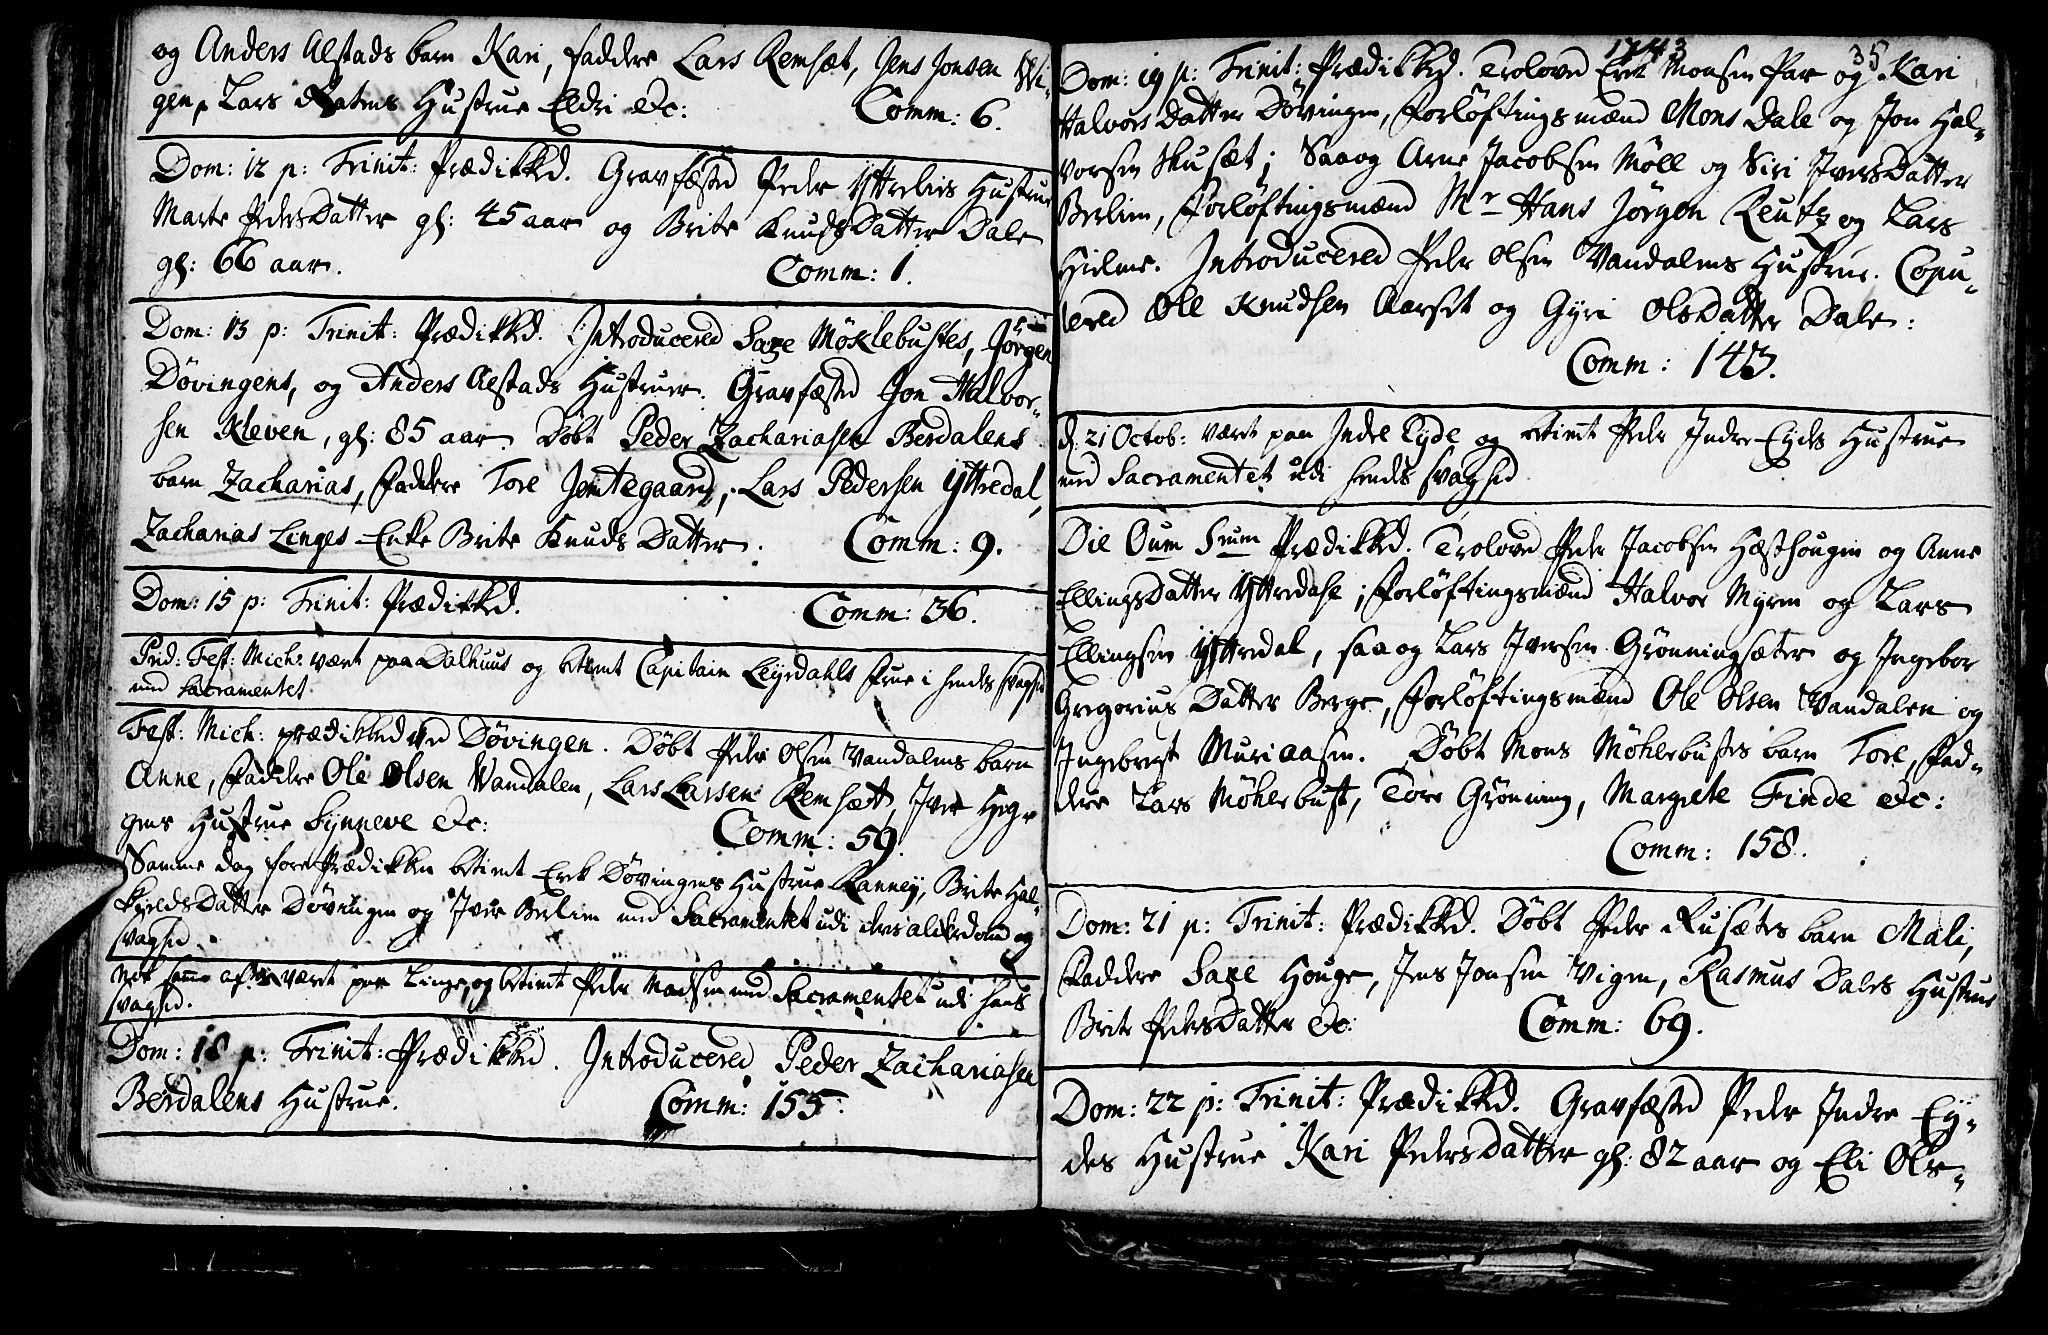 og Anders Alstads barn Kari, faddere Lars Remsæt, Jens Jonsen Wi-
gen, Lars Hustrue Eldri &c: Comm: 6.
Dom: 12 p: Trinit: Prædikked. Gravfæsted Peder Yttrelies Hustrue
Marte PedersDatter gl: 45 aar og Brite KnudsDatter Dale
gl: 66 aar. Comm: 1.
Dom: 13 p: Trinit: Prædikked. Introducered Saxe Möklebustes, Jörgen
Dövingens, og Anders Alstads Hustruer. Gravfæsted Jon Halvor-
sen Kleven, gl: 85 aar. Döbt Peder Zachariasen Berdalens
barn Zacharias, Faddere Tore Jemtegaard, Lars Pedersen Yttredal,
Zacharias Linges Enke Brite Knuds Datter. Comm: 9.
Dom: 15 p: Trinit: Prædikked. Comm: 36.
Prid: Fest: Mich: været paa Dalhuus og betient Capitain Leyrdahls Frue i hendes svaghed
med Sacramentet
Fest: Mich: prædikked ved Dövingen. Döbt Peder Olsen Vandalens barn
Anne, Faddere Ole Olsen Vandalen, Lars Larsen Remsætt, Iver Heg-
gens Hustrue Synneve &c: Comm: 59.
Samme dag före Prædikken betient Erik Dövingens Hustrue Ranney, Brite Hal-
kieldsDatter Dövingen og Iver Berlien med Sacramentet udi deres alderdom og
svaghed.
Nok samme aften været paa Linge, og betient Peder Madsen med Sacramentet udi hans
svaghed.
Dom: 18 p: Trinit: Prædikked. Introducered Peder Zachariasen
Berdalens Hustrue. Comm: 155.
1743 35
Dom: 19 p: Trinit: Prædikked. Trolovet Erik Monsen Par og Kari
HalvorsDatter Dövingen, Forlöftingsmænd Mons Dale og Jon Hal-
vorsen Skusæt; Saaog Arne Jacobsen Möll og Siri IversDatter
Berlien, Forlöftingsmænd Mr Hans Jörgen Reutz og Lars
Hielme. Introducered Peder Olsen Vandalens Hustrue. Copu-
lered Ole Knudsen Aarset og Gyri OlsDatter Dale:
Comm: 143.
d. 21 Octob: været paa Indre Eyde og betient Peder Indre Eydes Hustrue
med Sacramentet udi hendes svaghed
Die Oum Srum Prædikked. Trolovet Peder Jacobsen Hæsthougen og Anne
EllingsDatter Yttredahl; Forlöftingsmænd Halvor Myren og Lars
Ellingsen Yttredal, saa og Lars Iversen Grönningsæter og Ingebor
Gregorius Datter Berge, Forlöftingsmænd Ole Olsen Vandalen og
Ingebrigt Muriaasen. Döbt Mons Möklebustes barn Tore, Fad-
dere Lars Möklebust, Tore Grönning, Margrete Finde &c:
Comm: 158.
Dom: 21 p: Trinit: Prædikked. Döbt Peder Rusætes barn Mali,
Faddere Saxe Houge, Jens Jonsen Vigen, Rasmus Dales Hustrue
Brite PedersDatter &c: Comm: 69.
Dom: 22 p: Trinit: Prædikked. Gravfæsted Peder Indre Ey-
des Hustrue Kari PedersDatter gl: 82 aar og Eli Ols-